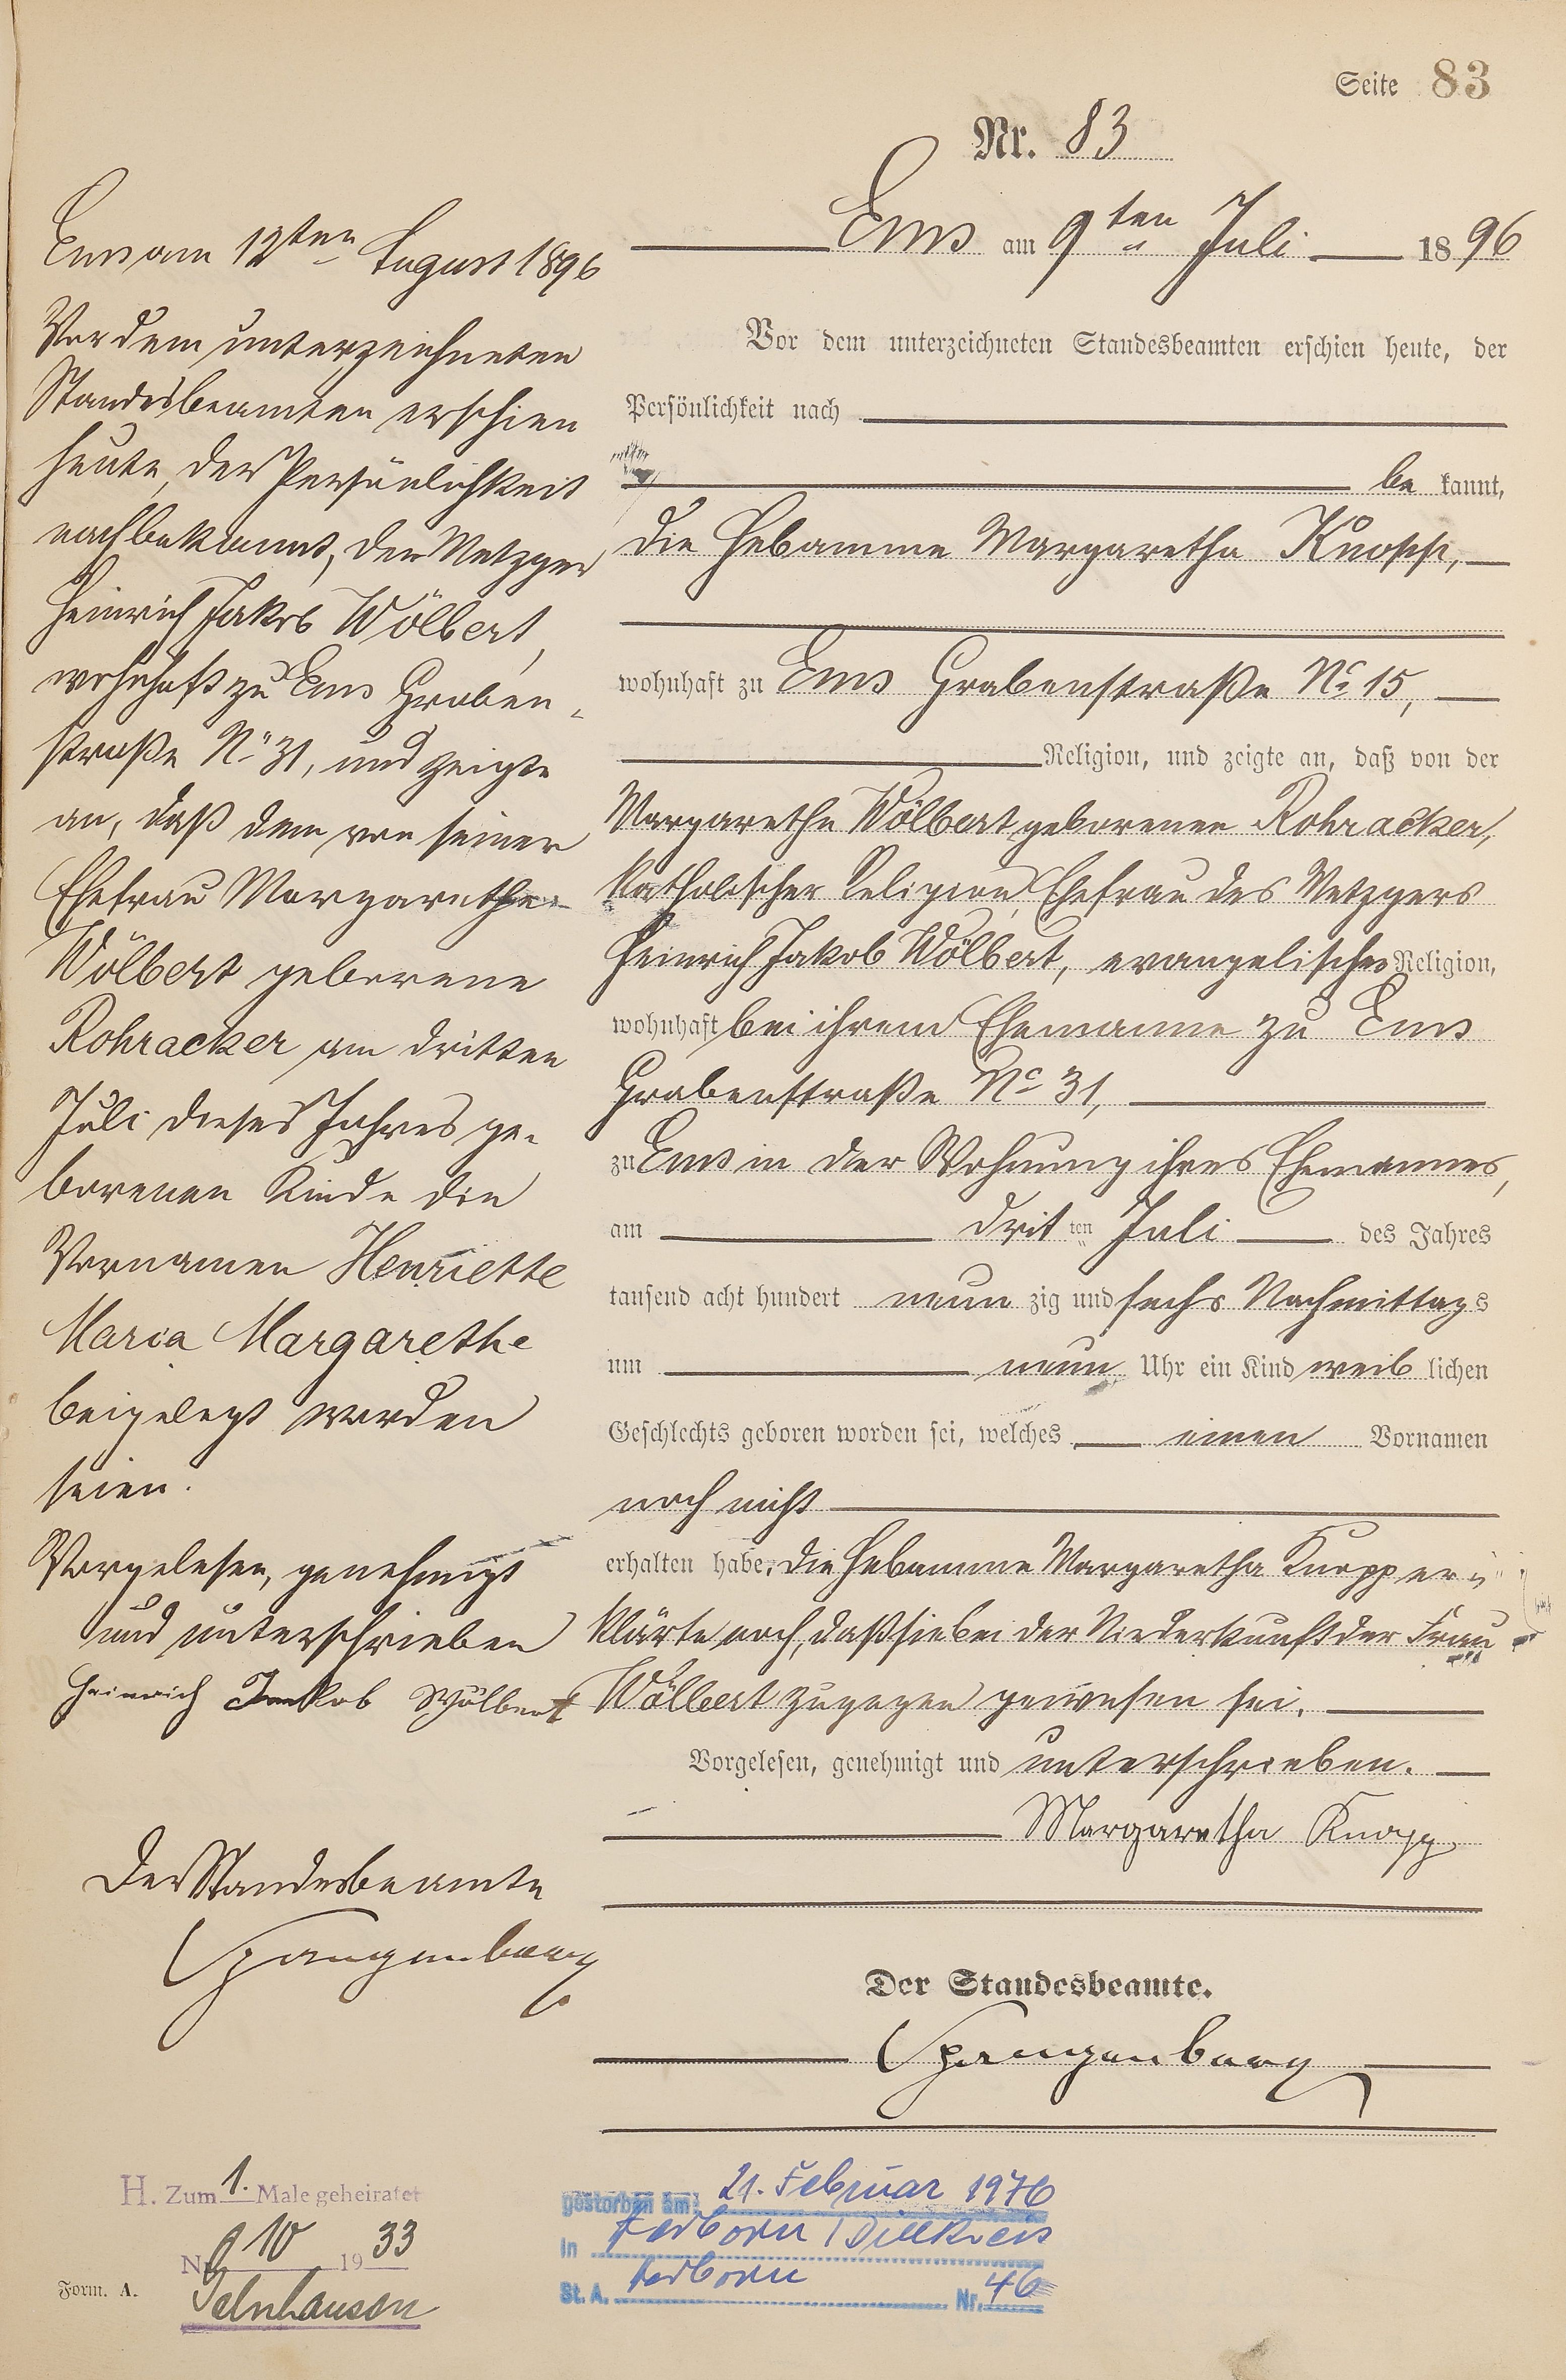 Seite 83
Nr. 83
Ems am 9ten Juli 1896
Vor dem unterzeichneten Standesbeamten erschien heute, der
Persönlichkeit nach
be kannt,
die Hebamme Margaretha Knopp,
wohnhaft zu Ems Grabenstraße No 15,
Religion, und zeigte an, daß von der
Margarethe Wölbert geborenen Rohracker,
katholischer Religion, Ehefrau des Metzgers
Heinrich Jakob Wölbert, evangelischer Religion,
wohnhaft bei ihrem Ehemanne zu Ems
Grabenstraße No 31,
zu Ems in der Wohnung ihres Ehemannes,
am dritten Juli des Jahres
tausend acht hundert neun zig und sechs Nachmittags
um neun Uhr ein Kind weib lichen
Geschlechts geboren worden sei, welches einen Vornamen
noch nicht
erhalten habe. Die Hebamme Margaretha Knopp er=
klärte noch, daß sie bei der Niederkunft der Frau
Wölbert zugegen gewesen sei.
Vorgelesen, genehmigt und unterschrieben.
Margaretha Knopp
Der Standesbeamte.
Spangenberg
Ems am 12ten August 1896
Vor dem unterzeichneten
Standesbeamten erschien
heute, der Persönlichkeit
nach bekannt, der Metzger
Heinrich Jakob Wölbert,
wohnhaft zu Ems Graben=
straße No 31, und zeigte
an, daß dem von seiner
Ehefrau Margarethe
Wölbert geborene
Rohracker am dritten
Juli dieses Jahres ge=
borenen Kinde die
Vornamen Henriette
Maria Margarethe
beigelegt worden
seien.
Vorgelesen, genehmigt
und unterschrieben
Heinrich Jakob Wölbert
Der Standesbeamte
Spangenberg
H. Zum 1. Male geheiratet
Nr. 10 1933
Gelnhausen
Form. A.
gestorben am: 21. Februar 1976
in Herborn / Dillkreis
St. A. Herborn Nr. 46